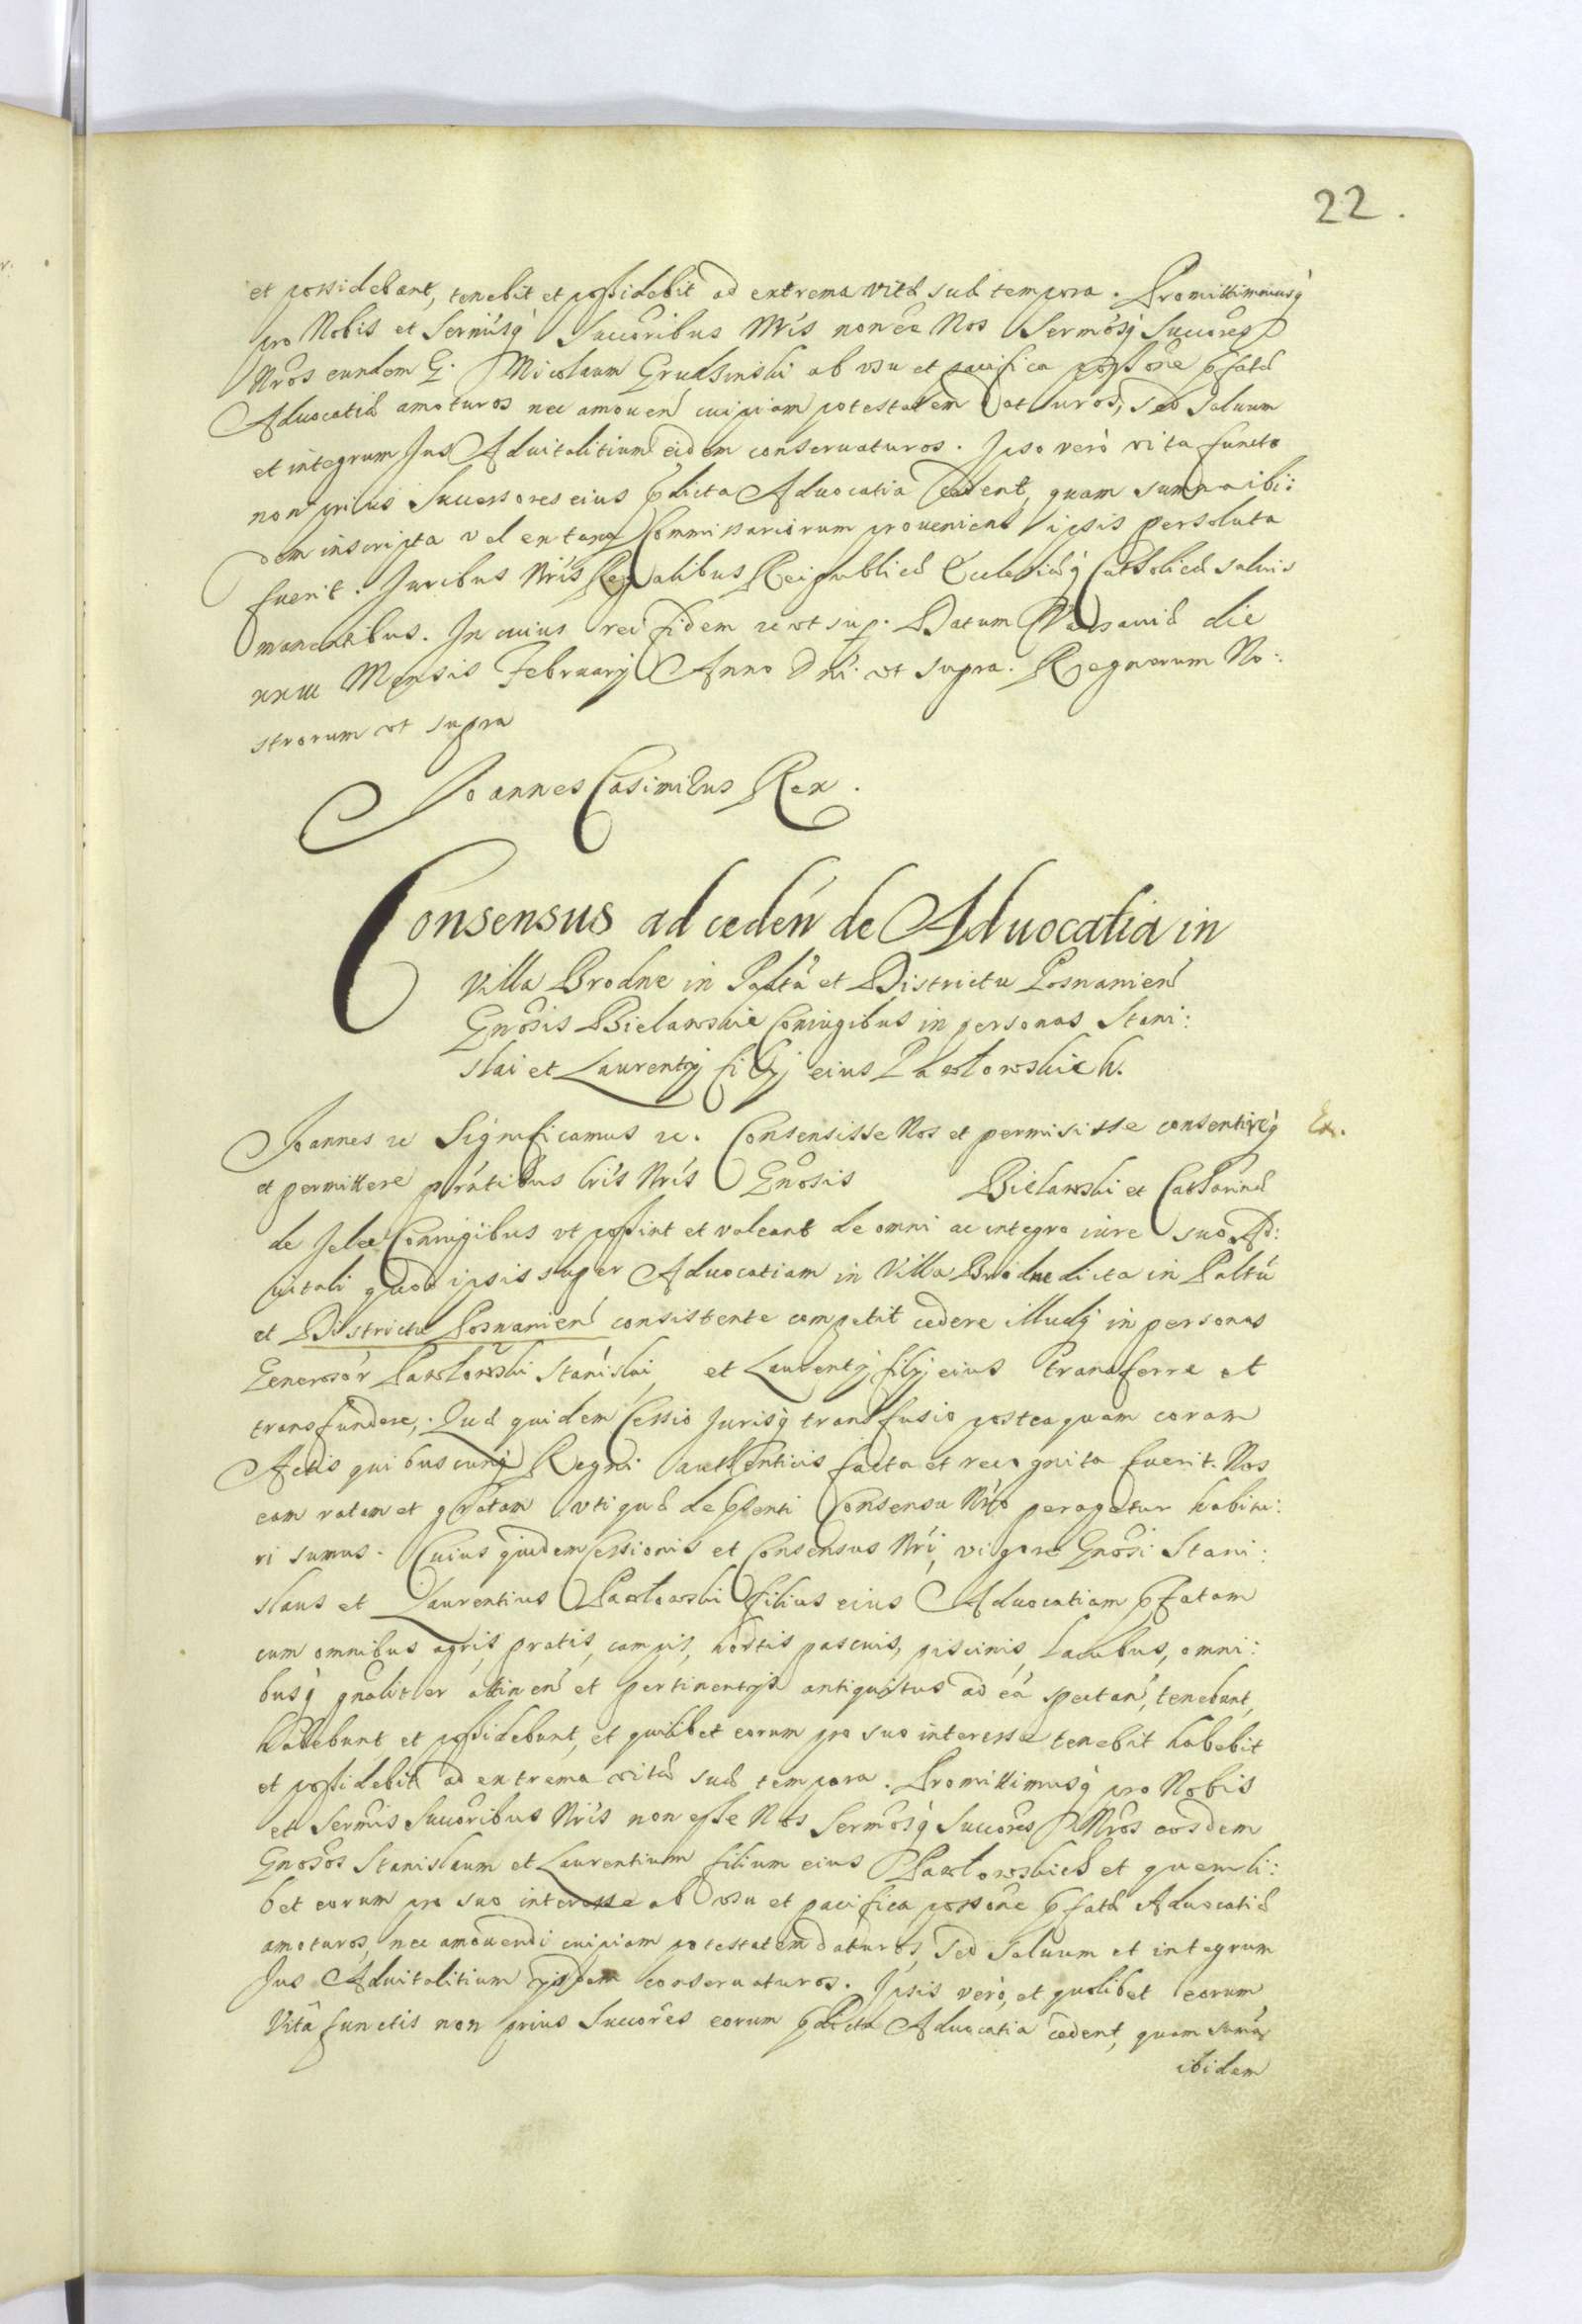 22.
et possidebant, tenebit et possidebit ad extrema vitæ suæ tempora. Promittimusq́
pro Nobis et Sermisq́ Succoribus Nr̃is non ee Nos Sermosq́ Succores
Nr̃os eundem G. Nicolaum Grudsinski ab vsu et pacifica possõne p̱fatæ
Aduocatiæ amoturos nec amouen cuipiam potestatem daturos, sed saluum
et integrum Jus Aduitalitium eidem conseruaturos. Ipso verò vita functo
non prius Successores eius p̱dicta Aduocatia cedent, quam summa ibi:
dem inscripta vel ex taxa Commissariorum proueniens ipsis persoluta
fuerit. Juribus Nr̃is Regalibus Reipublicæ Ecclesiæq́ Catholicæ saluis
manentibus. In cuius rei fidem &c vt sup. Datum Varsauiæ die
Mensis February Anno Dni. vt supra. Regnorum No:
strorum vt supra
Joannes Casimirus Rex.
Consensus ad ceden de Aduocatia in
Villa Brodne in Paltu et Districtu Posnanien
Gnosis Bielawskie Coniugibus in personas Stani:
slai et Laurentij filij eius Pawłowskich.
Joannes &c Significamus &c. Consensisse Nos et permisisse consentireq́ Ex.
et permittere p̱ntibus lris Nr̃is Gnosis Bielawski et Catharinæ
de Jelce Coniugibus vt possint et valeant de omni ac integro iure suo Ad:
uitali quod ipsis super Aduocatiam in Villa Brodne dicta in Paltu
et Districtu Posnanien consistente competit cedere illudq́ in personas
Generosor Pawłowski Stanislai, et Laurentij filij eius transferre et
transfundere, Quæ quidem Cessio Jurisq́ transfusio posteaquam coram
Actis quibuscunq́ Regni authenticis facta et recognita fuerit. Nos
eam ratam et gratam vti quæ de p̱senti Consensu Nr̃o peragetur habitu:
ri sumus. Cuius quidem Cessionis et Consensus Nr̃i, vigore Gnosi Stani:
slaus et Laurentius Pawłowski filius eius Aduocatiam p̱fatam
cum omnibus agris, pratis, campis, hortis pascuis, piscinis, lacubus, omni:
busq́ gnaliter attinen et pertinentijs antiquitus ad eã spectan, tenebunt,
habebunt et possidebunt, et quilibet eorum pro suo interesse tenebit habebit
et possidebit ad extrema vitæ suæ tempora. Promittimusq́ pro Nobis
et Sermis Succoribus Nr̃is non esse Nos Sermosq́ Succores Nr̃os eosdem
Gnosos Stanislaum et Laurentium filium eius Pawłowskich et quemli:
bet eorum pro suo interesse ab vsu et pacifica possõne p̱fatæ Aduocatiæ
amoturos, nec amouendi cuipiam potestatem daturos, sed saluum et integrum
Jus Aduitalitium ijsdem conseruaturos. Ipsis verò, et quolibet eorum
Vitâ functis non prius Succores eorum p̱dicta Aduocatia cedent, quam suma
ibidem